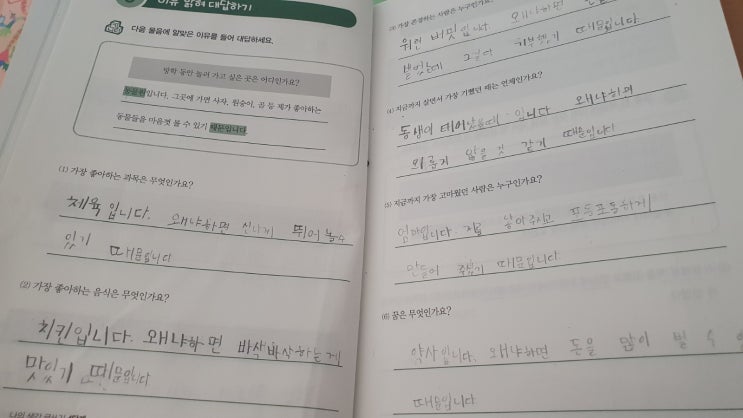 이유 밝혀 대답하기
다음 물음에 알맞은 이유를 들어 대답하세요.
방학 동안 놀러 가고 싶은 곳은 어디인가요?
동물원입니다. 그곳에 가면 사자, 원숭이, 곰 등 제가 좋아하는
동물들을 마음껏 볼 수 있기 때문입니다.
(1) 가장 좋아하는 과목은 무엇인가요?
체육입니다. 왜냐하면 신나게 뛰어 놀수
있기 때문입니다
(2) 가장 좋아하는 음식은 무엇인가요?
치킨입니다. 왜냐하면 바삭바삭하는게
맛있기 때문입니다
(3) 가장 존경하는 사람은 누구인가요?
워런 버핏입니다. 왜냐하면
때문입니다
(4) 지금까지 살면서 가장 기뻤던 때는 언제인가요?
동생이 태어났을때 입니다 왜냐하면
외롭지 않을 것 같기 때문입니다
(5) 지금까지 가장 고마웠던 사람은 누구인가요?
엄마입니다. 저를 낳아주시고 포동포동하게
만들어 주셨기 때문입니다
(6) 꿈은 무엇인가요?
약사입니다. 왜냐하면 돈을 많이 벌 수
때문입니다